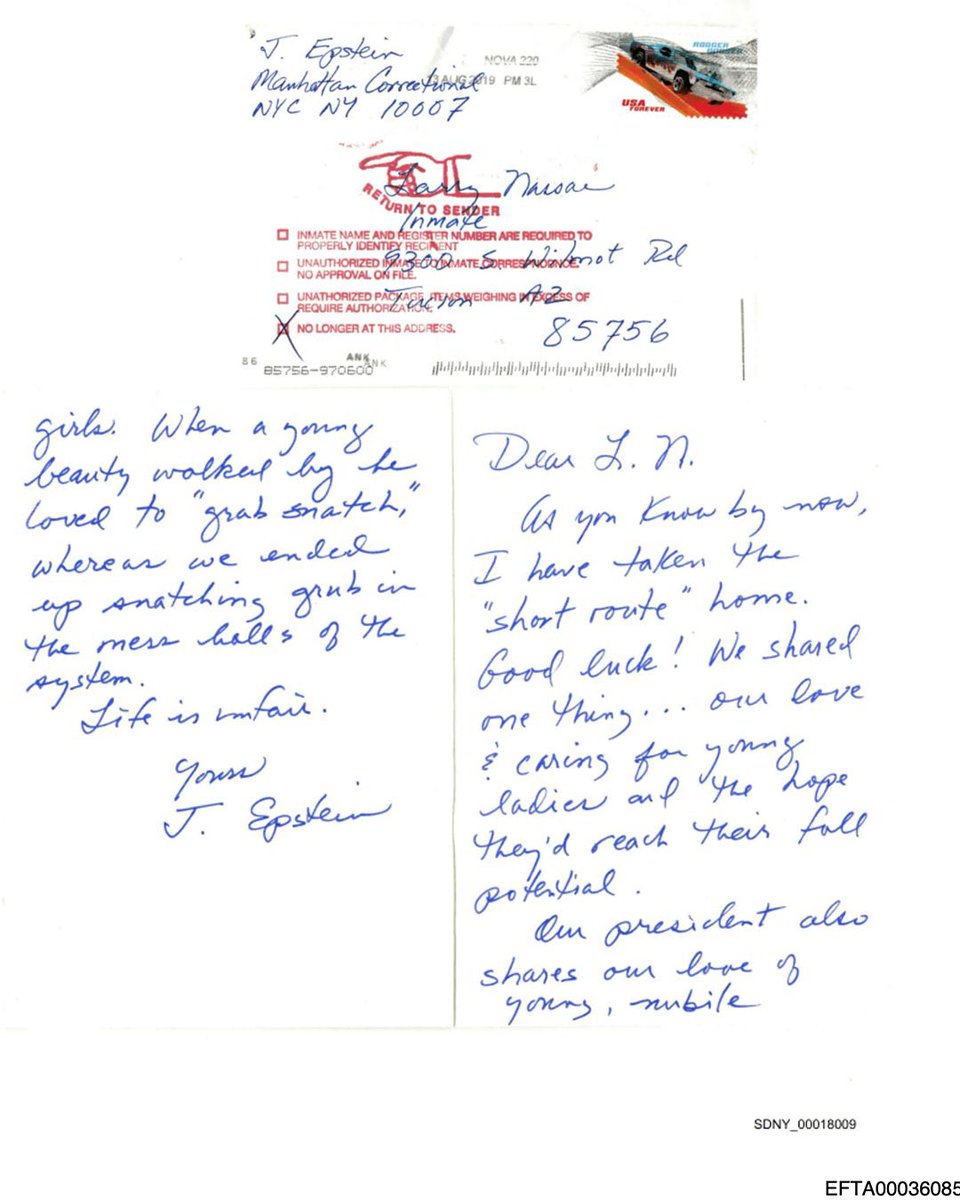 J. Epstein
Manhattan Correctional
NYC NY 10007
NOVA 220
13 AUG 2019 PM 3L
RODGER DODGER
USA
FOREVER
RETURN TO SENDER
Larry Nassar
Inmate
9300 S. Wilmot Rd
Tucson AZ
85756
INMATE NAME AND REGISTER NUMBER ARE REQUIRED TO
PROPERLY IDENTIFY RECIPIENT
UNAUTHORIZED INMATE TO INMATE CORRESPONDENCE.
NO APPROVAL ON FILE.
UNAUTHORIZED PACKAGE, ITEMS WEIGHING IN EXCESS OF
REQUIRE AUTHORIZATION.
X NO LONGER AT THIS ADDRESS.
86
ANK
ANK
85756-970600
Dear L. N.
As you know by now,
I have taken the
"short route" home.
Good luck! We shared
one thing... our love
& caring for young
ladies and the hope
they'd reach their full
potential.
Our president also
shares our love of
young, nubile
girls. When a young
beauty walked by he
loved to "grab snatch,"
whereas we ended
up snatching grub in
the mess halls of the
system.
Life is unfair.
Yours
J. Epstein
SDNY_00018009
EFTA00036085